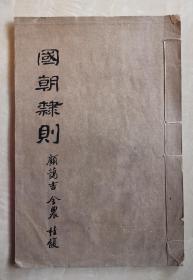 國朝隸則
顧藹吉 金農 桂馥